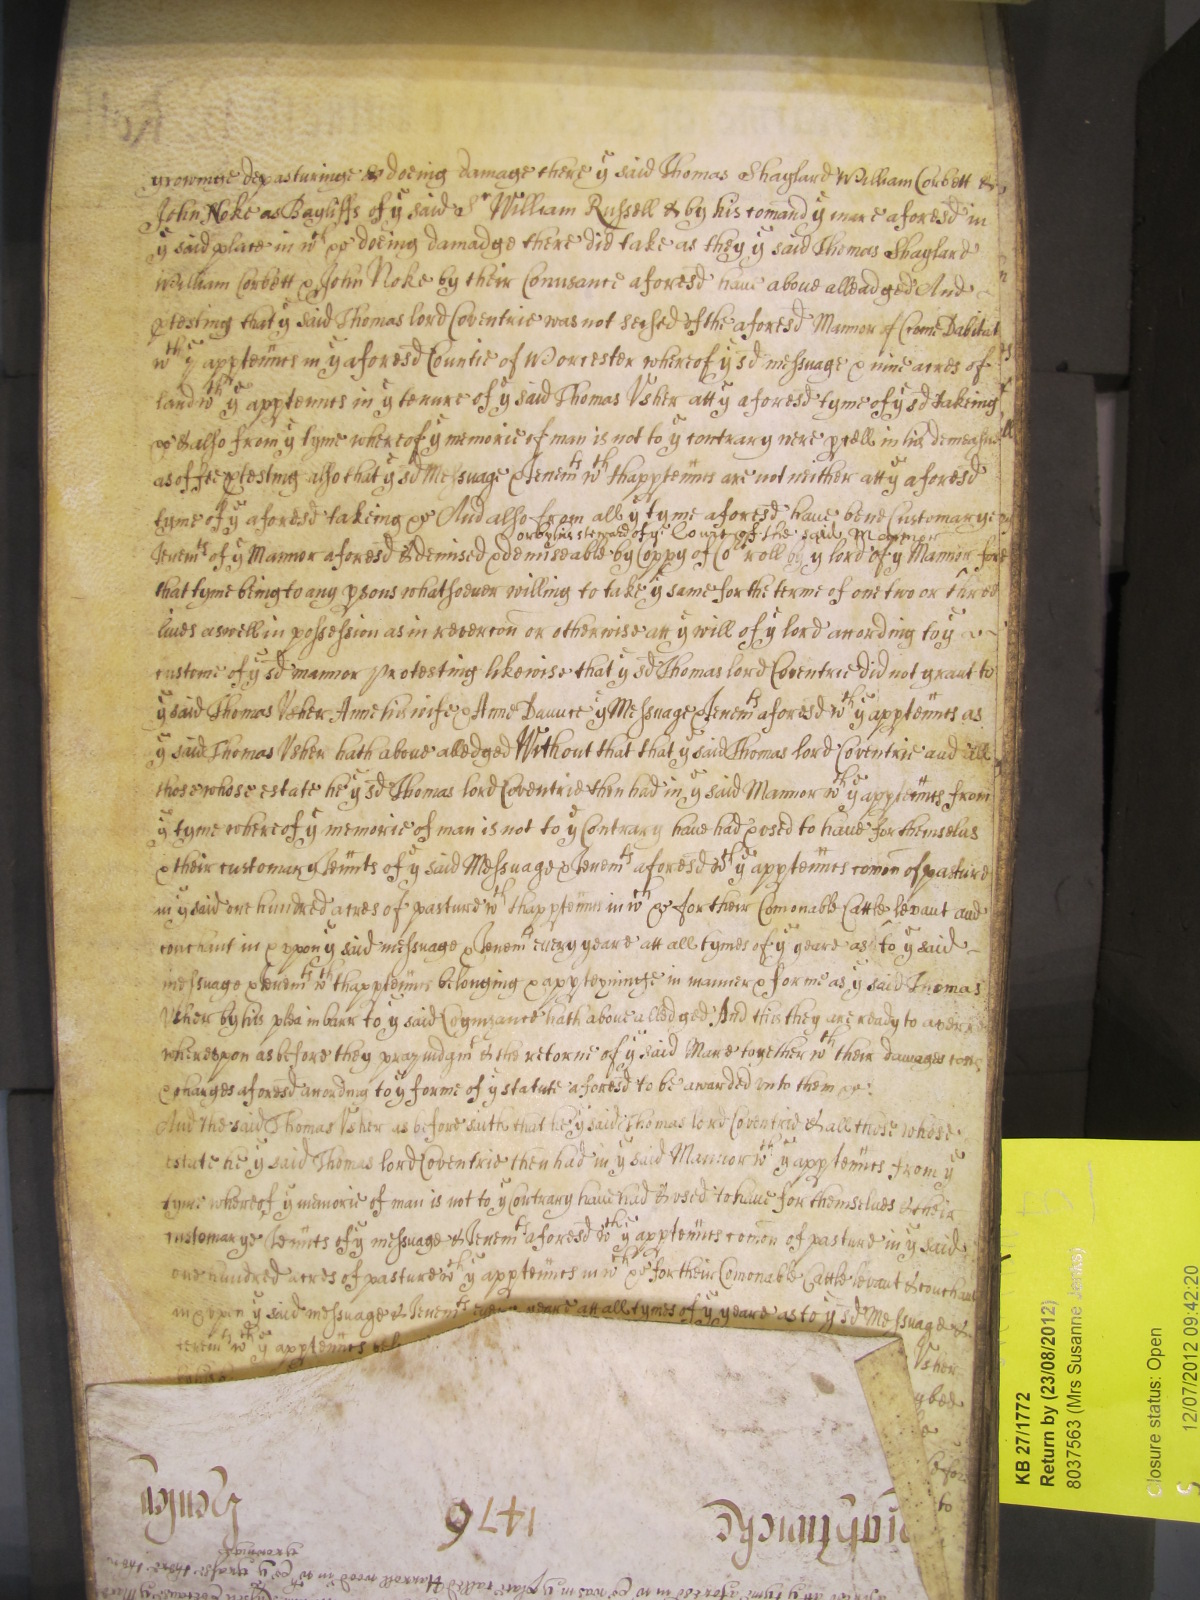 growinge depasturinge & doeing damage there y said Thomas Shaylard William Corbett &
John Noke as Bayliffs of y said Sr William Russell & by his comand y mare aforesd in
y said place in wth &c doeing damadge there did take as they y said Thomas Shaylard
William Corbett & John Noke by their Conusance aforesd haue aboue alleadged And
ptesting that y said Thomas lord Coventrie was not seised of the aforesd Mannor of Crome Dabitot
wth y apptennces in y aforesd Countie of Worcester whereof y sd messuage & nine acres of
land wth y apptennces in y tenure of y said Thomas Vsher att y aforesd tyme of y sd takeing
&c & also from y tyme whereof y memorie of man is not to y contrary were pcell in his demeasne
as of fee ptesting also that y sd Messuage & Tenemts wth thapptennces are not neither att y aforesd
tyme of y aforesd takeing &c And also from all y tyme aforesd haue bene Customarye
or by his steward of y Court of the said Mannor
Tenemts of y Mannor aforesd & demised & demiseable by Coppy of Cort roll by y lord of y Mannor for
that tyme being to any psons whatsoeuer willing to take y same for the terme of one two or three
liues aswell in possession as in revercon or otherwise att y will of y lord according to y
custome of y sd mannor Protesting likewise that y sd Thomas lord Coventrie did not grant to
y said Thomas Vsher Anne his wife & Anne Daunce y Messuage & Tenemts aforesd wth y apptennces as
y said Thomas Vsher hath aboue alledged Without that that y said Thomas lord Coventrie and all
those whose estate he y sd Thomas lord Coventrie then had in y said Mannor wth y apptennces from
y tyme whereof y memorie of man is not to y Contrary haue had & vsed to haue for themselus
& their customary Tennts of y said Messuage & Tenemts aforesd wth y apptennces comon of pasture
in y said one hundred acres of pasture wth thapptennces in wth &c for their Comonable Cattle levant and
couchant in & vpon y said messuage & Tenemts every yeare att all tymes of y yeare as to y said
messuage & tenemts wth thapptennces belonging & appteyninge in manner & forme as y said Thomas
Vsher by his plea in barr to y said Cognizance hath aboue alledged And this they are ready to averre
wherevpon as before they pray iudgmt & the retorne of y said Mare together wth their damages costs
& charges aforesd according to y forme of y statute aforesd to be awarded vnto them &c:
And the said Thomas Vsher as before saith that he y said Thomas lord Coventrie & all those whose
estate he y said Thomas lord Coventrie then had in y said Mannor wth y apptennces from y
tyme whereof y memorie of man is not to y Contrary haue had & vsed to haue for themselues & their
customarye Tennts of y messuage & Tenemts aforesd wth y apptennces comon of pasture in y said
one hundred acres of pasture wth y apptennces in wth &c for their Comonable Cattle levant & couchant
in & vpon y said messuage & Tenemts every yeare att all tymes of y yeare as to y sd Messuage &
tenemts wth y apptennces
Vsher
to
1476
KB 27/1772
Return by (23/08/2012)
8037563 (Mrs Susanne Jenks)
Closure status: Open
12/07/2012 09:42:20
S